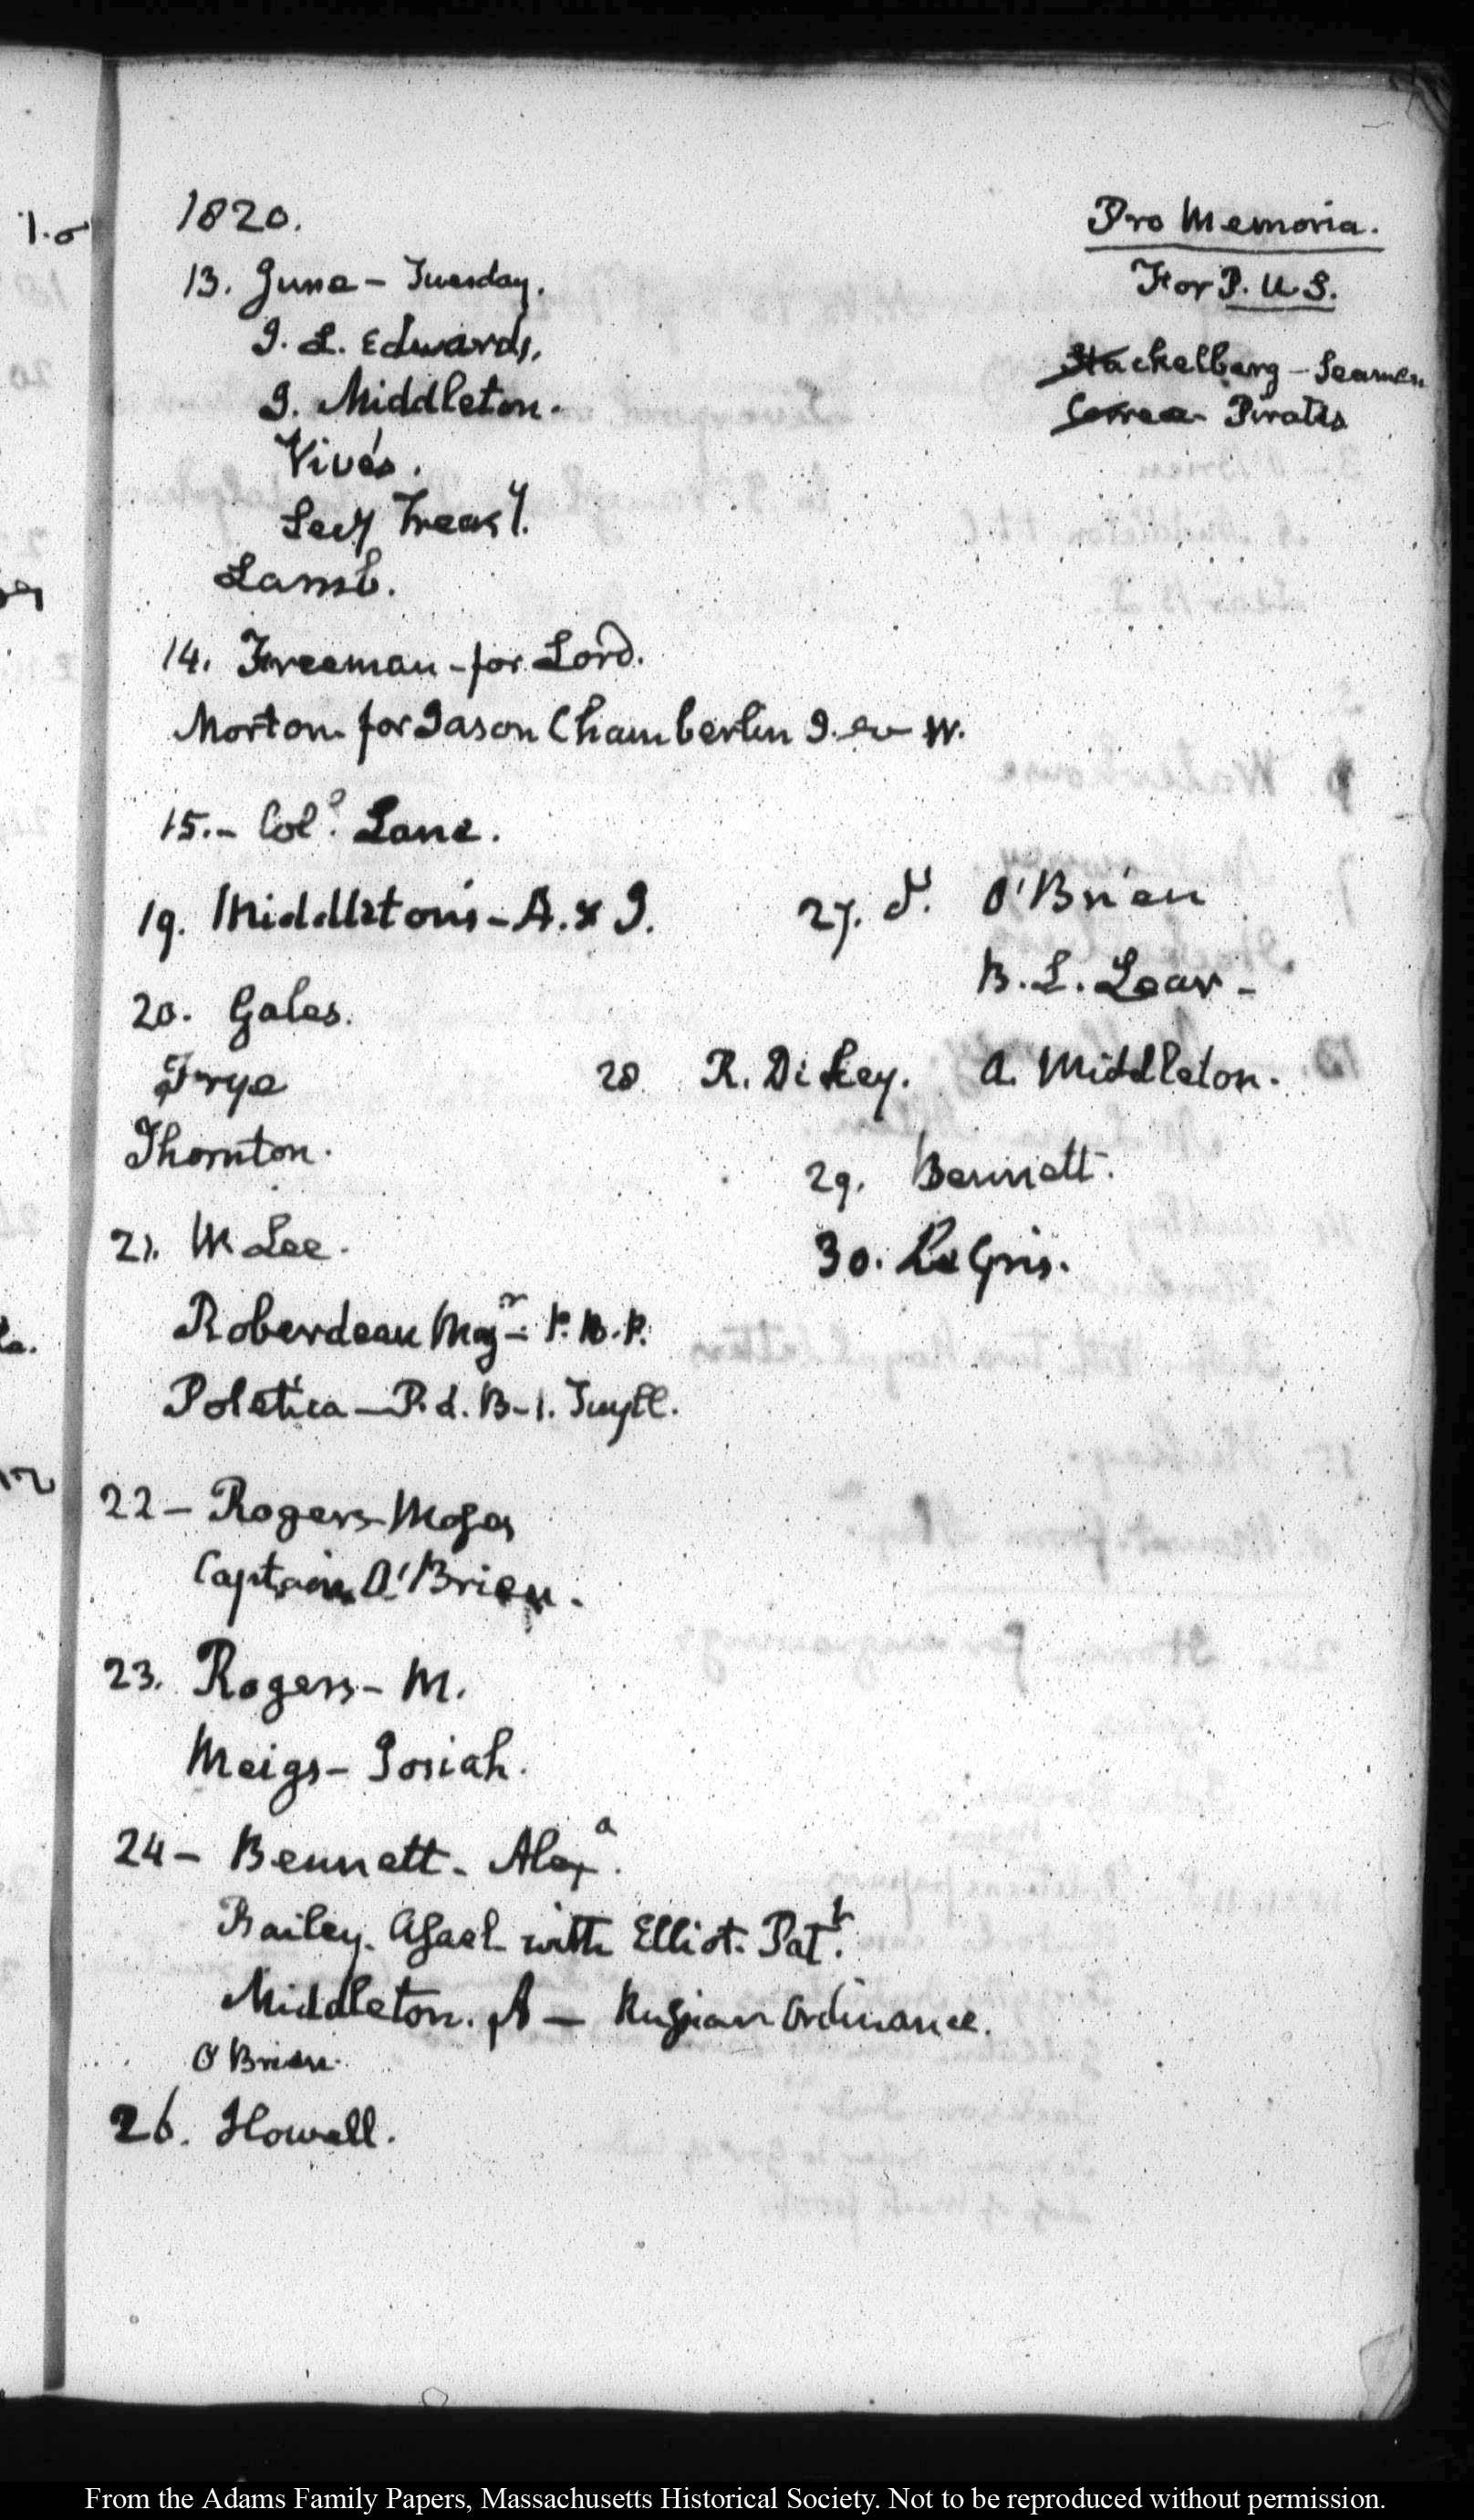 1820.
13. June – Tuesday.
J. L. Edwards,
J. Middleton.
Vivés.
Secy Treasy.
Lamb.
14. Freeman – for Lord.
Morton for Jason Chamberlin J. W.
15.– Coll. Lane.
19. Middletons – A. & J.
20. Gales.
Frye
Thornton.
21. Lee.
Roberdeau Majr – P. B. P.
Poletica – P. d. B – 1. Tuyll.
22 – Rogers – Moses
Captain O'Brien.
23. Rogers – M.
Meigs – Josiah.
24 – Bennett – Alexa.
Bailey. Asael with Elliot. Patk.
Middleton. A – Russian Ordinance.
O'Brien.
26. Howell.
Pro Memoria.
For P. U. S.
Stackelberg – Seamen
Correa – Pirates
27. O'Brien
B. L. Lear –
28 R. Dickey. A. Middleton.
29. Bennett.
30. Le Gris.
From the Adams Family Papers, Massachusetts Historical Society. Not to be reproduced without permission.